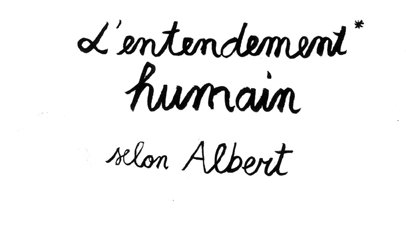 L'entendement*
humain
selon Albert